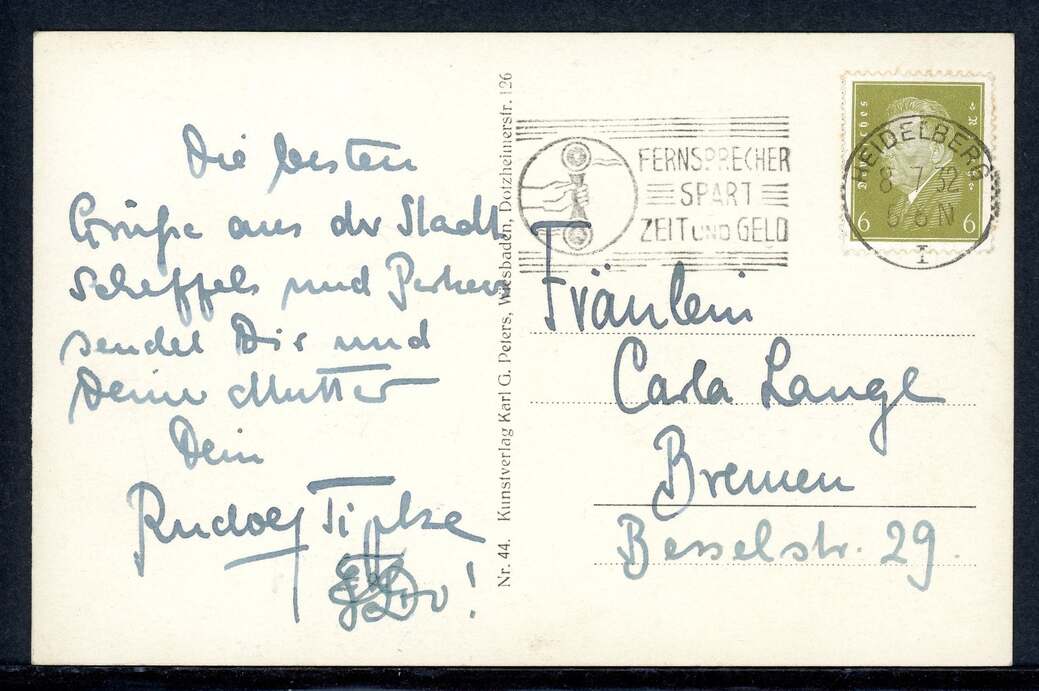 Die besten
Grüße aus der Stadt
Scheffels und
sendet Dir und
Deine Mutter
Dein
Rudolf
Nr. 44. Kunstverlag Karl G. Peters, Wiesbaden, Dotzheimerstr. 126
FERNSPRECHER
SPART
ZEIT UND GELD
HEIDELBERG
8.7.32
5-6 N
1
Deutsches Reich
6 6
Fräulein
Carla Lange
Bremen
Besselstr. 29.